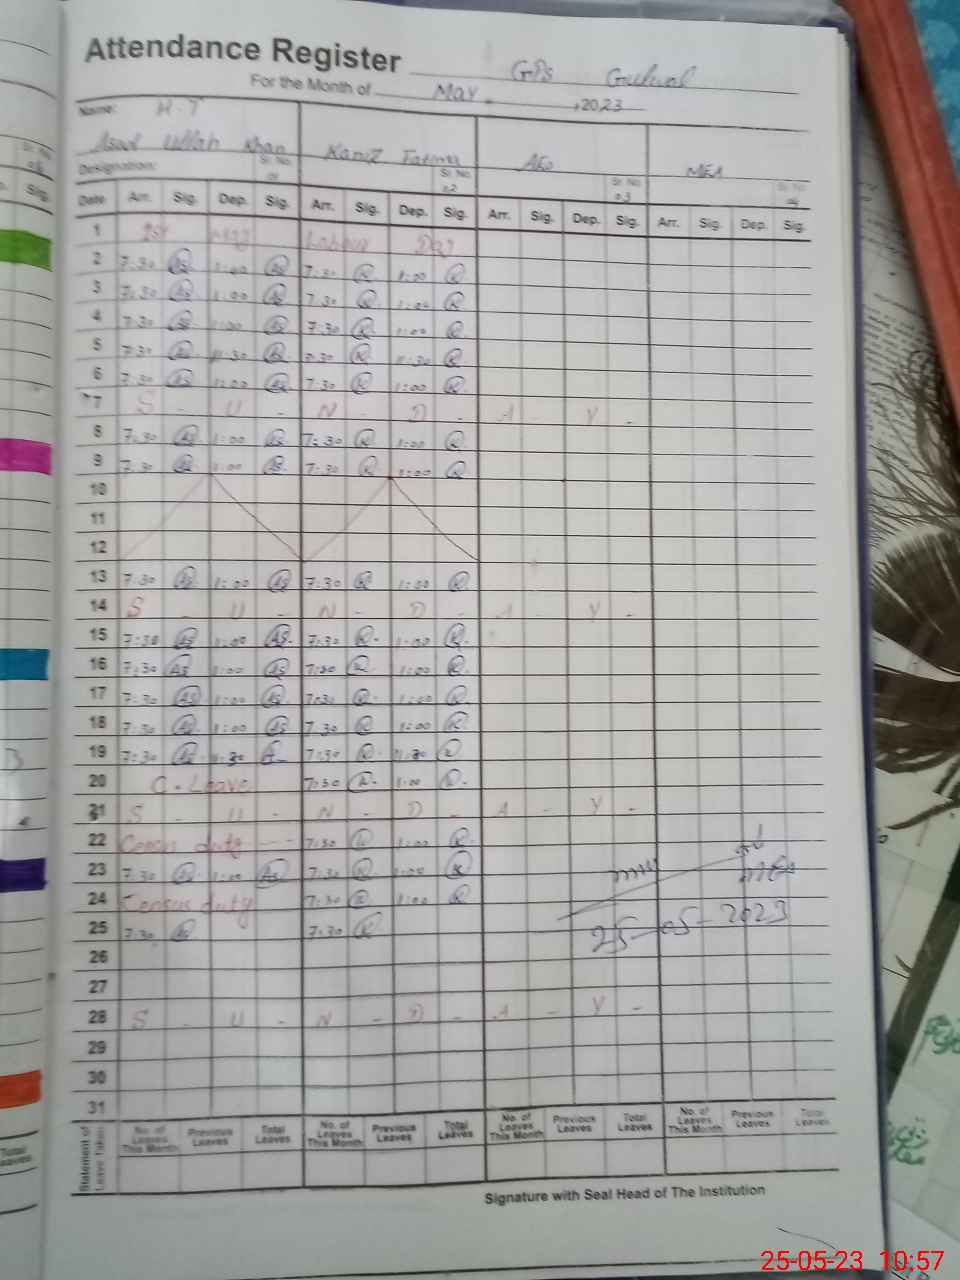 Attendance Register GPS
For the Month of May 2023
Name: H.T
Asad Ullah Khan Kaniz Fatima AEO MEA
Designation: Sr. No 01 Sr. No 02 Sr. No 03 Sr. No 04
Date Arr. Sig. Dep. Sig. Arr. Sig. Dep. Sig. Arr. Sig. Dep. Sig. Arr. Sig. Dep. Sig.
1 1st May Labour Day
2 7:30 As 1:00 As 7:30 K 1:00 K
3 7:30 As 1:00 As 7:30 K 1:00 K
4 7:30 As 1:00 As 7:30 K 1:00 K
5 7:30 As 11:30 As 7:30 K 11:30 K
6 7:30 As 1:00 As 7:30 K 1:00 K
7 S - U - N - D - A - Y -
8 7:30 As 1:00 As 7:30 K 1:00 K
9 7:30 As 1:00 As 7:30 K 1:00 K
10
11
12
13 7:30 As 1:00 As 7:30 K 1:00 K
14 S - U - N - D - A - Y -
15 7:30 As 1:00 As 7:30 K 1:00 K
16 7:30 As 1:00 As 7:30 K 1:00 K
17 7:30 As 1:00 As 7:30 K 1:00 K
18 7:30 As 1:00 As 7:30 K 1:00 K
19 7:30 As 11:30 7:30 K 11:30
20 C. Leave 7:30 K 1:00
21 S - U - N - D - A - Y -
22 duty 7:30 K 1:00 K
23 7:30 As 1:00 As 7:30 K 1:00 K
24 Census duty 7:30 K 1:00 K
25 7:30 As 7:30 K 25-05-2023
26
27
28 S - U - N - D - A - Y -
29
30
31
Statement of Leave Taken No. of Leaves This Month Previous Leaves Total Leaves No. of Leaves This Month Previous Leaves Total Leaves No. of Leaves This Month Previous Leaves Total Leaves No. of Leaves This Month Previous Leaves Total Leaves
Signature with Seal Head of The Institution
25-05-23 10:57